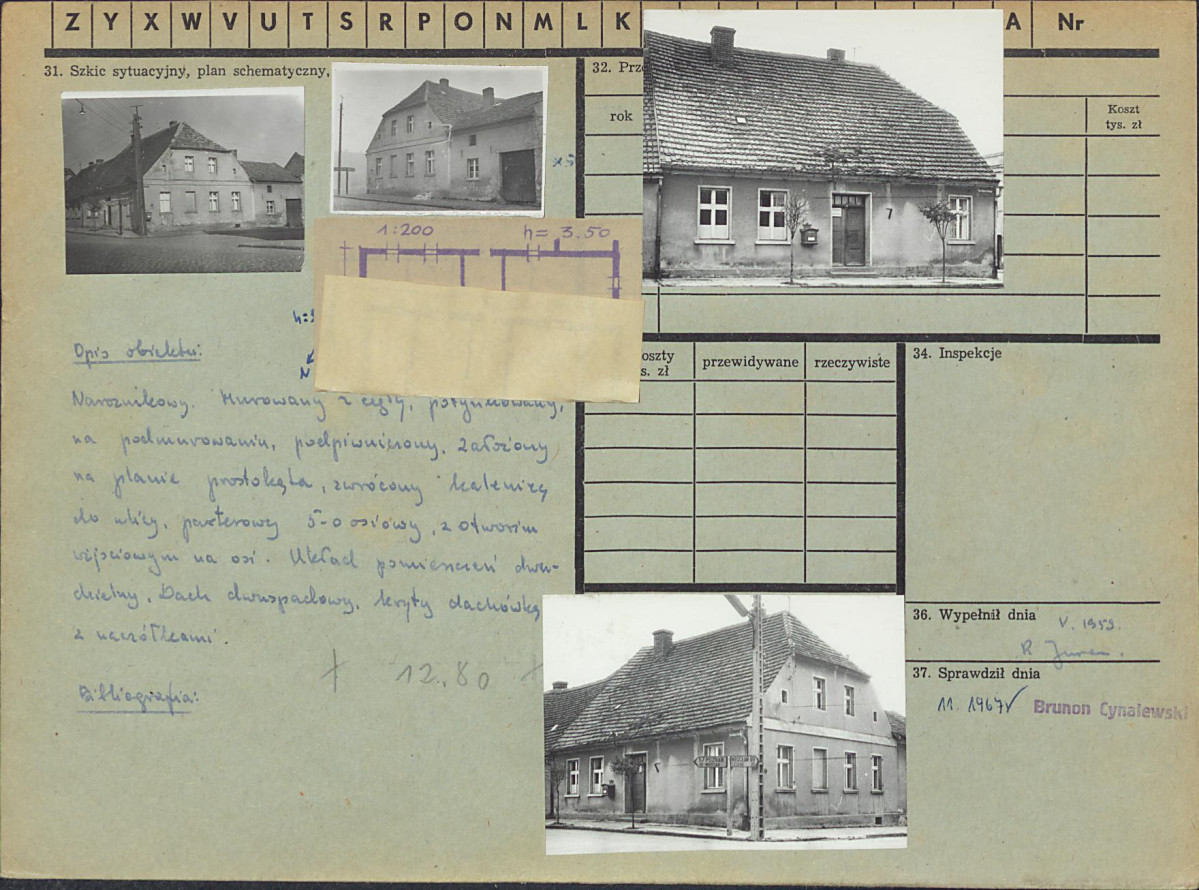 Z Y X W V U T S R P O N M L K A Nr
31. Szkic sytuacyjny, plan schematyczny,
32. Prz
rok
Koszt
tys. zł
1:200 h= 3.50
7
Opis obiektu:
N
Narożnikowy. Murowany z cegły, potynkowany,
na podmurowaniu, podpiwniczony. Założony
na planie prostokąta, zwrócony kalenicą
do ulicy, parterowy 5-o osiowy, z otworem
wejściowym na osi. Układ pomieszczeń dwu-
dzielny. Dach dwuspadowy, kryty dachówką
z naczółkami.
12.80
Bibliografia:
oszty
s. zł
przewidywane
rzeczywiste
34. Inspekcje
36. Wypełnił dnia
V. 1959.
R
37. Sprawdził dnia
11. 1967
Brunon Cynalewski